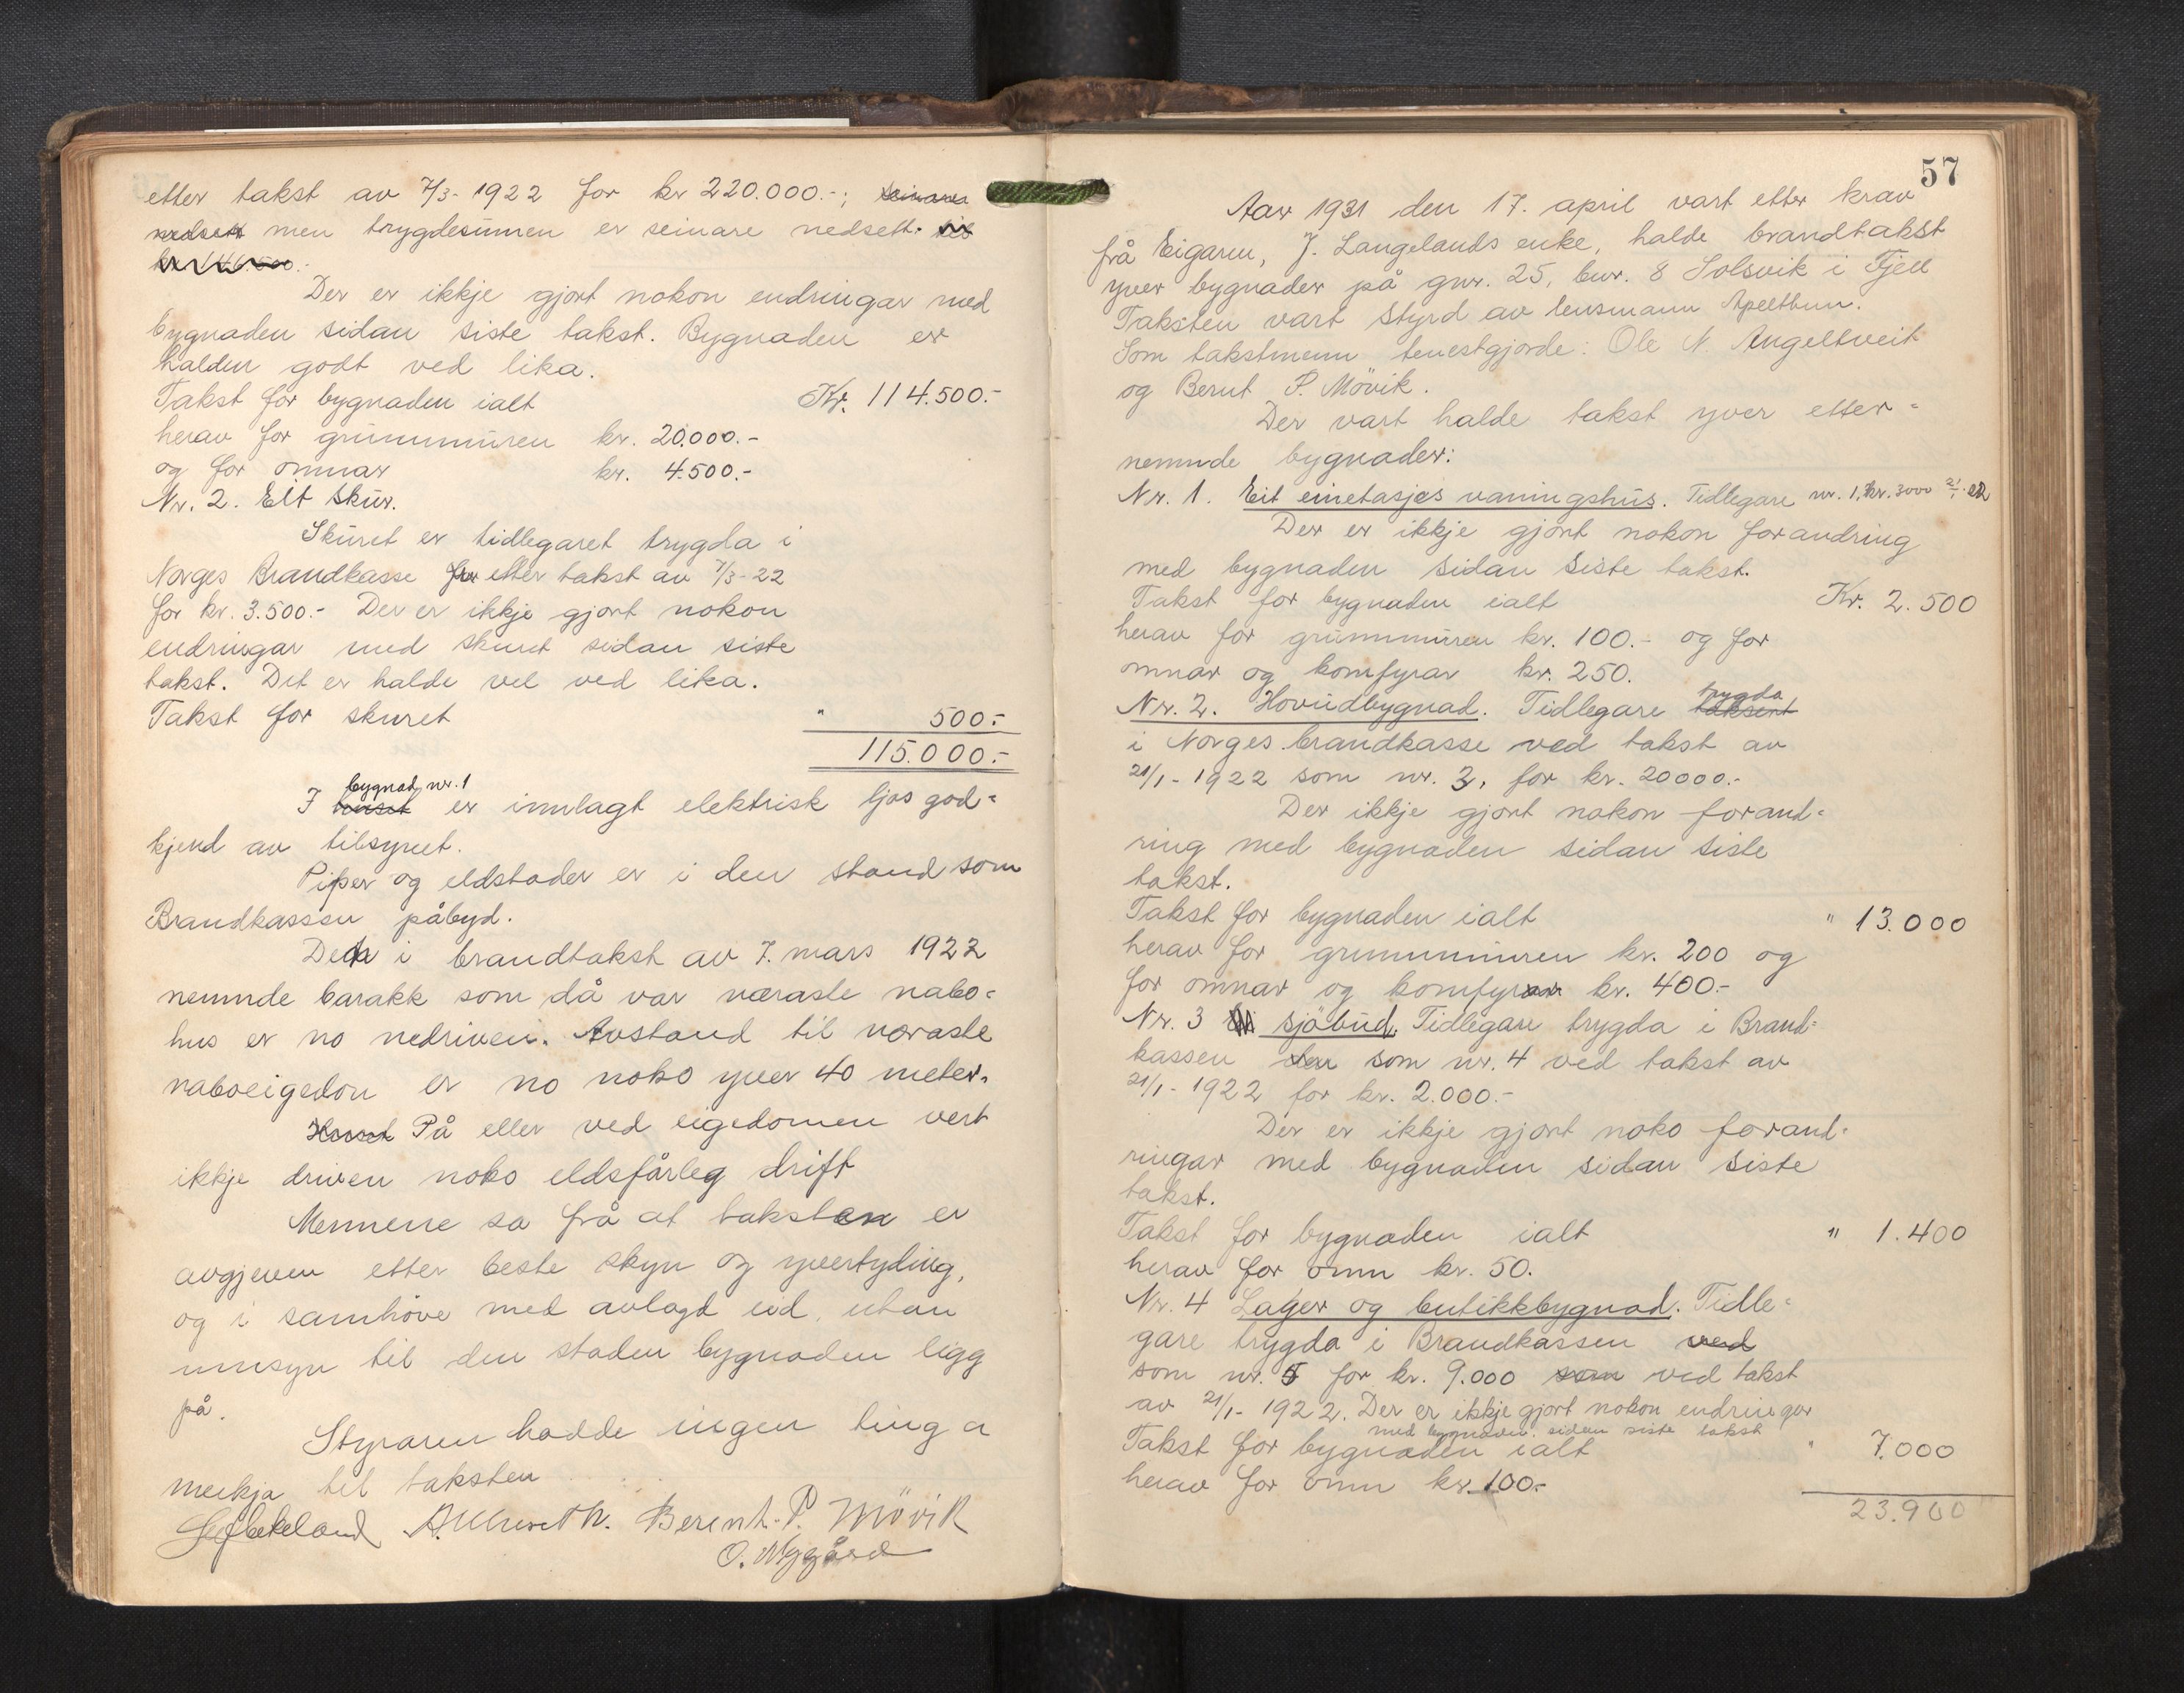 etter takst av 7/3-1922 for kr 220.000.-; seinare
nedsett men trygdesumen er seinare nedsett. til
kr.
Der er ikkje gjort nokon endringar med
bygnaden sidan siste takst. Bygnaden er
halden godt ved lika.
Takst for bygnaden ialt Kr. 114.500.-
herav for grunnmuren kr. 20.000.-
og for omnar kr. 4.500.-
Nr. 2. Eit skur.
Skuret er tidlegaret trygda i
Norges Brandkasse for etter takst av 7/3-22
for kr. 3.500.- Der er ikkje gjort nokon
endringar med skuret sidan siste
takst. Det er halde vel ved lika.
Takst for skuret " 500.-
115.000.-
bygnad nr. 1
I huset er innlagt elektrisk ljos god-
kjend av tilsynet.
Piper og eldstader er i den stand som
Brandkassen påbyd.
Den i brandtakst av 7. mars 1922
nemnde barakk som då var næraste nabo-
hus er no nedriven. Avstand til næraste
naboeigedon er no noko yver 40 meter.
Huset På eller ved eigedomen vert
ikkje driven noko eldsfårleg drift
Mennene sa frå at taksten er
avgjeven etter beste skyn og yvertyding,
og i samhöve med avlagd eid, utan
umsyn til den staden bygnaden ligg
på.
Styraren hadde ingen ting a
merkja til taksten
Berent. P. Mövik
O. Nygård
57
Aar 1931 den 17. april vart etter krav
frå Eigaren, J. Langelands enke, halde brandtakst
yver bygnader på gnr. 25, bnr. 8 Solsvik i Fjell
Taksten vart styrd av lensmann Apelthun.
Som takstmenn tenestgjorde: Ole N. Angeltveit
og Bernt P. Mövik.
Der vart halde takst yver etter-
nemnde bygnader:
Nr. 1. Eit einetasjes vaningshus. Tidlegare nr. 1, kr. 3000 21/1-22
Der er ikkje gjort nokon forandring
med bygnaden sidan siste takst.
Takst for bygnaden ialt Kr. 2.500
herav for grunnmuren kr. 100.- og for
omnar og komfyrar kr. 250.
trygda
Nr. 2. Hovudbygnad. Tidlegare taksert
i Norges brandkasse ved takst av
21/1-1922 som nr. 3, for kr. 20000.-
Der ikkje gjort nokon forand-
ring med bygnaden sidan siste
takst.
Takst for bygnaden ialt " 13.000
herav for grunnmuren kr. 200 og
for omnar og komfyrar kr. 400.-
Nr. 3 Ei sjöbud. Tidlegare trygda i Brand-
kassen den som nr. 4 ved takst av
21/1-1922 for kr. 2.000.-
Der er ikkje gjort noko forand-
ringar med bygnaden sidan siste
takst.
Takst for bygnaden ialt " 1.400
herav for omn kr. 50.
Nr. 4 Lager og butikkbygnad. Tidle-
gare trygda i Brandkassen ved
som nr. 5 for kr. 9.000 som ved takst
av 21/1-1922. Der er ikkje gjort nokon endringar
med bygnaden sidan siste takst
Takst for bygnaden ialt " 7.000
herav for omn kr. 100.-
23.900